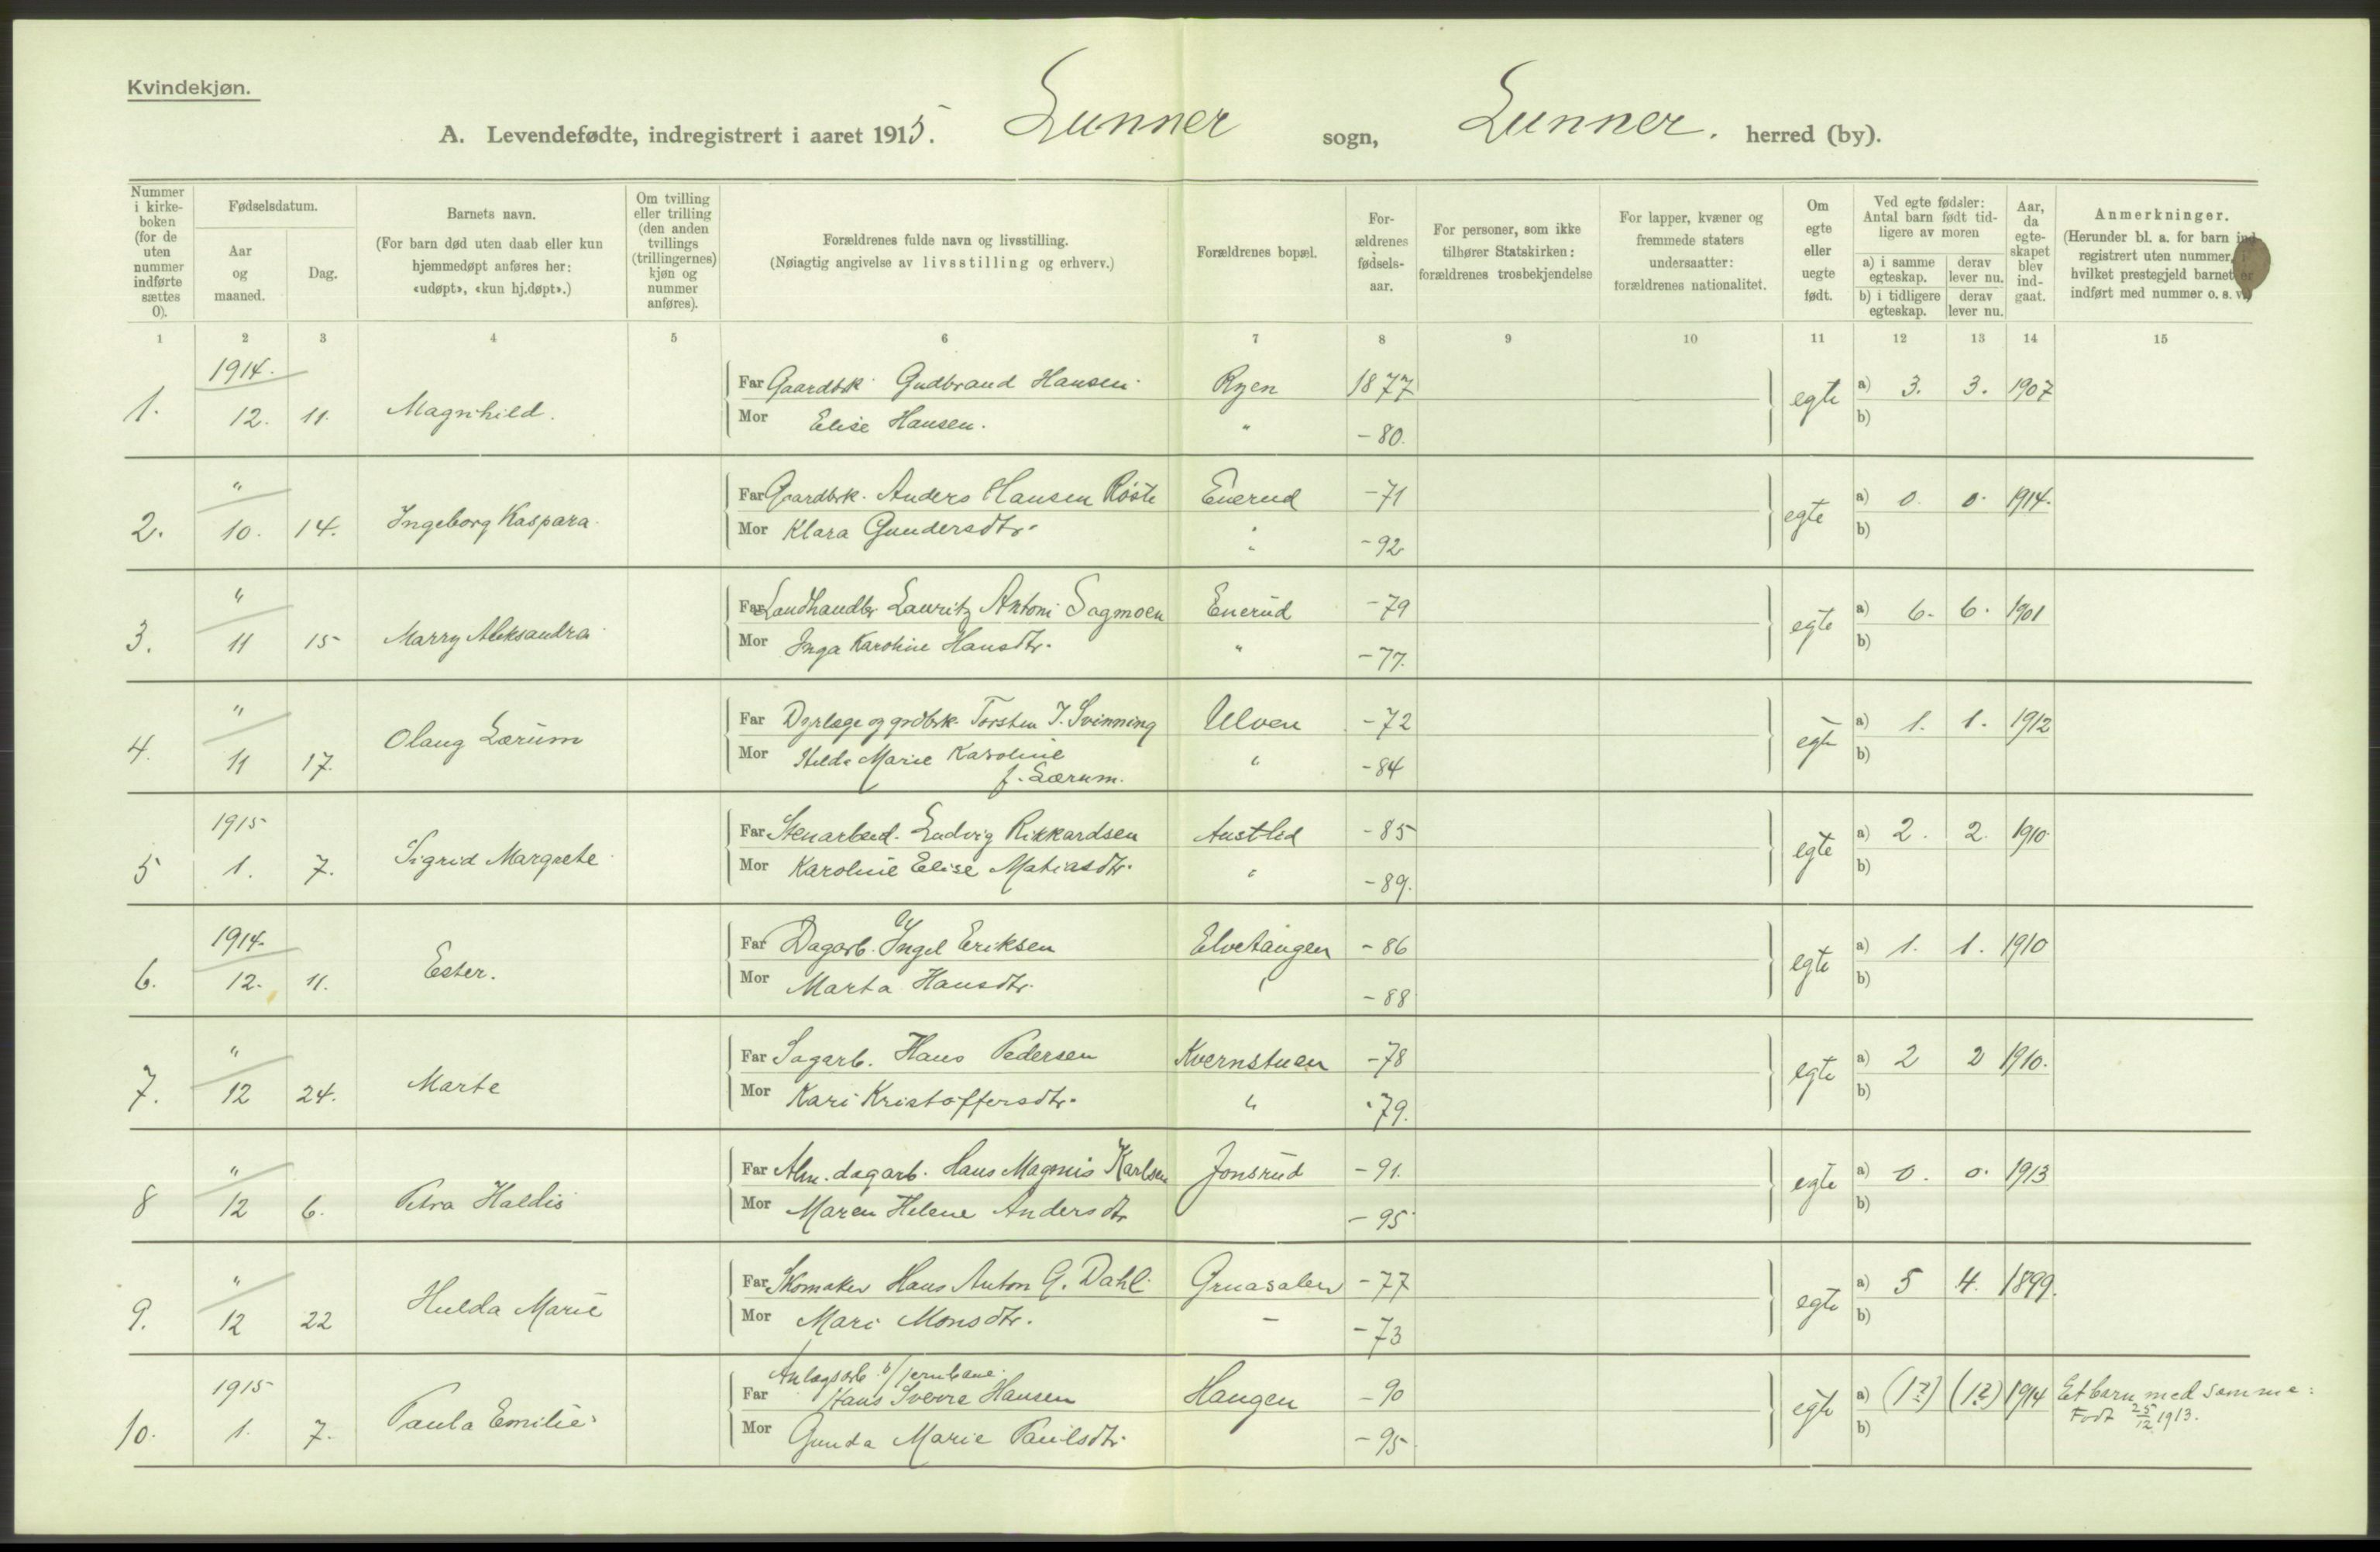 Kvindekjøn.
A. Levendefødte, indregistrert i aaret 1915. Lunner sogn, Lunner. herred (by).
Nummer i kirkeboken (for de uten nummer indførte sættes 0).
Fødselsdatum.
Aar og maaned.
Dag.
Barnets navn.
(For barn død uten daab eller kun hjemmedøpt anføres her: «udøpt», «kun hj.døpt».)
Om tvilling eller trilling (den anden tvillings (trillingernes) kjøn og nummer anføres).
Forældrenes fulde navn og livsstilling.
(Nøiagtig angivelse av livsstilling og erhverv.)
Forældrenes bopæl.
Forældrenes fødselsaar.
For personer, som ikke tilhører Statskirken: forældrenes trosbekjendelse
For lapper, kvæner og fremmede staters undersaatter: forældrenes nationalitet.
Om egte eller uegte født.
Ved egte fødsler: Antal barn født tidligere av moren
a) i samme egteskap. derav lever nu.
b) i tidligere egteskap. derav lever nu.
Aar, da egteskapet blev indgaat.
Anmerkninger.
(Herunder bl. a. for barn indregistrert uten nummer, i hvilket prestegjeld barnet er indført med nummer o. s. v.)
1 2 3 4 5 6 7 8 9 10 11 12 13 14 15
1914.
1. 12. 11. Magnhild. Far Gaardbk. Gudbrand Hansen. Ryen 1877 egte a) 3. 3. 1907
Mor Elise Hansen. " -80. b)
"
2. 10. 14. Ingeborg Kaspara. Far Gaardbrk. Anders Hansen Røste Enerud -71 egte a) 0. 0. 1914.
Mor Klara Gundersdtr. " -92 b)
"
3. 11 15 Marry Aleksandra Far Landhandlr. Lauritz Antoni Sagmoen Enerud -79 egte a) 6. 6. 1901
Mor Inga Karoline Hansdtr. " -77. b)
"
4. 11 17. Olaug Lærum Far Dyrlæge og grdbrk. Torsten J. Svinning Ulven -72 egte a) 1. 1. 1912
Mor Hilda Marie Karoline " -84 b)
f. Lærum.
1915
5 1. 7. Sigrid Margrete Far Stenarbeid. Ludvig Rikkardsen Austlid -85 egte a) 2. 2. 1910.
Mor Karoline Elise Matiasdtr. " -89. b)
1914.
6. 12. 11. Ester. Far Dagarb. Yngel Eriksen Elvetangen -86 egte a) 1. 1. 1910
Mor Marta Hansdtr. " -88 b)
"
7. 12 24. Marte Far Sagarb. Hans Pedersen Kvernstuen -78 egte a) 2 2 1910.
Mor Kari Kristoffersdtr. " -79. b)
"
8 12 6. Petra Haldis Far Alm. dagarb. Hans Magnus Karlsen Jonsrud -91. egte a) 0. 0. 1913
Mor Maren Helene Andersdtr -95 b)
"
9. 12 22 Hulda Marie Far Skomaker Hans Anton G. Dahl. Gruasalen -77 egte a) 5 4. 1899.
Mor Mari Monsdtr. - -73 b)
1915 Anlægsarb. v/jernbane
10. 1. 7. Paula Emilie Far Hans Sverre Hansen Haugen -90 egte a) (1?) (1?) 1914 Et barn med samme:
Født 25/12 1913.
Mor Gunda Marie Paulsdtr. -95 b)